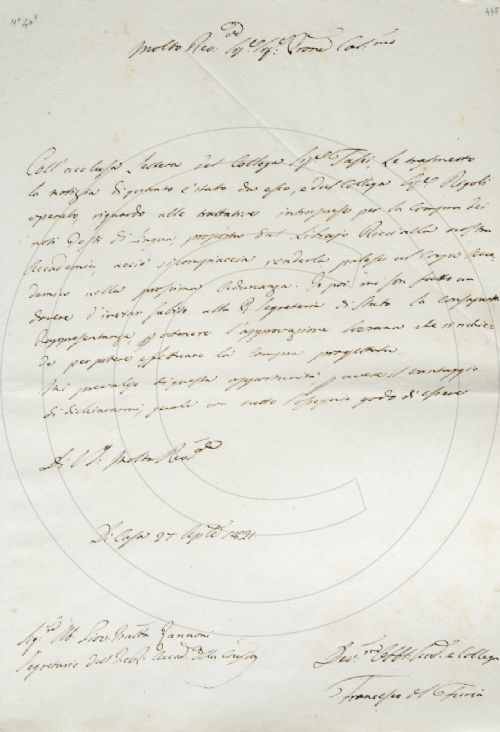 N° 40°
448
Molto Rev.do Sig.r Sig.r P.rone Col.mo
Coll'acclusa lettera del Collega Sig.r Tassi, Le trasmetto
la notizia di quanto è stato da esso, e dal Collega Sig.r Rigoli
operato, riguardo alle trattative intraprese per la Compra dei
noti Testi di lingua, proposta dal Librajo Ricci alla nostra
Accademia, acciò si compiaccia renderla palese al Corpo Acca-
demico nella prossima Adunanza. Io poi mi son fatto un
dovere d'inviar subito alla R. Segreteria di Stato la consueta
Rappresentanza, p ottenere l'approvazione Sovrana che si richie-
de per potere effettuare la Compra progettata.
Mi prevalgo di questa opportunità p avere il vantaggio
di dichiararmi, quale con tutto l'ossequio godo di essere
Di V. S. Molto Rev.da
Di Casa 27 1821
Sig.re Ab. Giov. Batta Zannoni
Segretario dell' Accad. della Crusca
Dev.mo Obb. Serv. e Collega
Francesco Del Furia